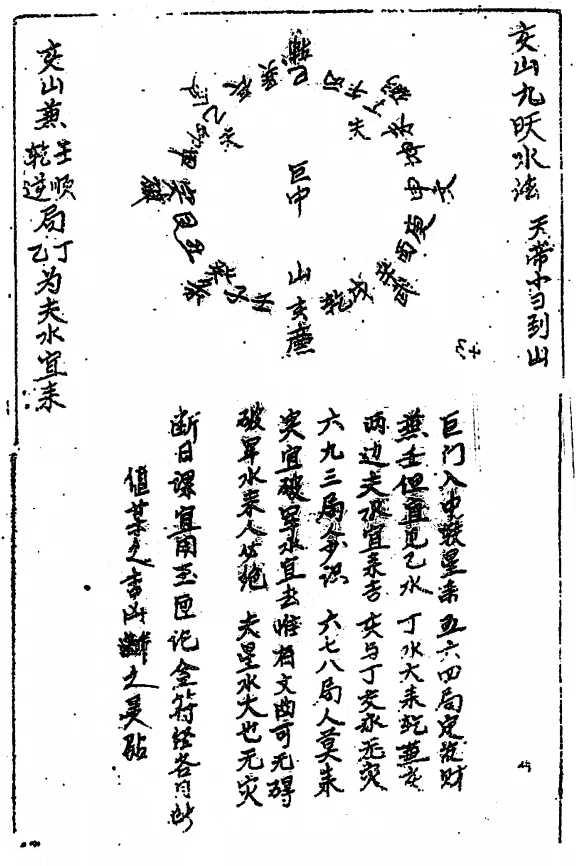 亥山九跃水法
天帝
到山
巨中
山亥廉
巳
丙午丁
夫
坤申
文
庚酉辛
戌乾
壬子癸
丑艮寅
甲卯乙
夫
辰巽
亥山兼壬顺
乾逆局丁
乙为夫水宜来
巨门入中数星来 五六四局定发财
兼壬但宜见乙水 丁水大来乾兼亥
两边夫水宜来吉 亥与丁交水无灾
六九三局人少识 六七八局人莫来
实宜破军水宜去 惟有文曲可无碍
破军水来人必绝 夫星水大也无灾
断日课宜用玉匣记金符经各月断
值某之吉凶断之灵验